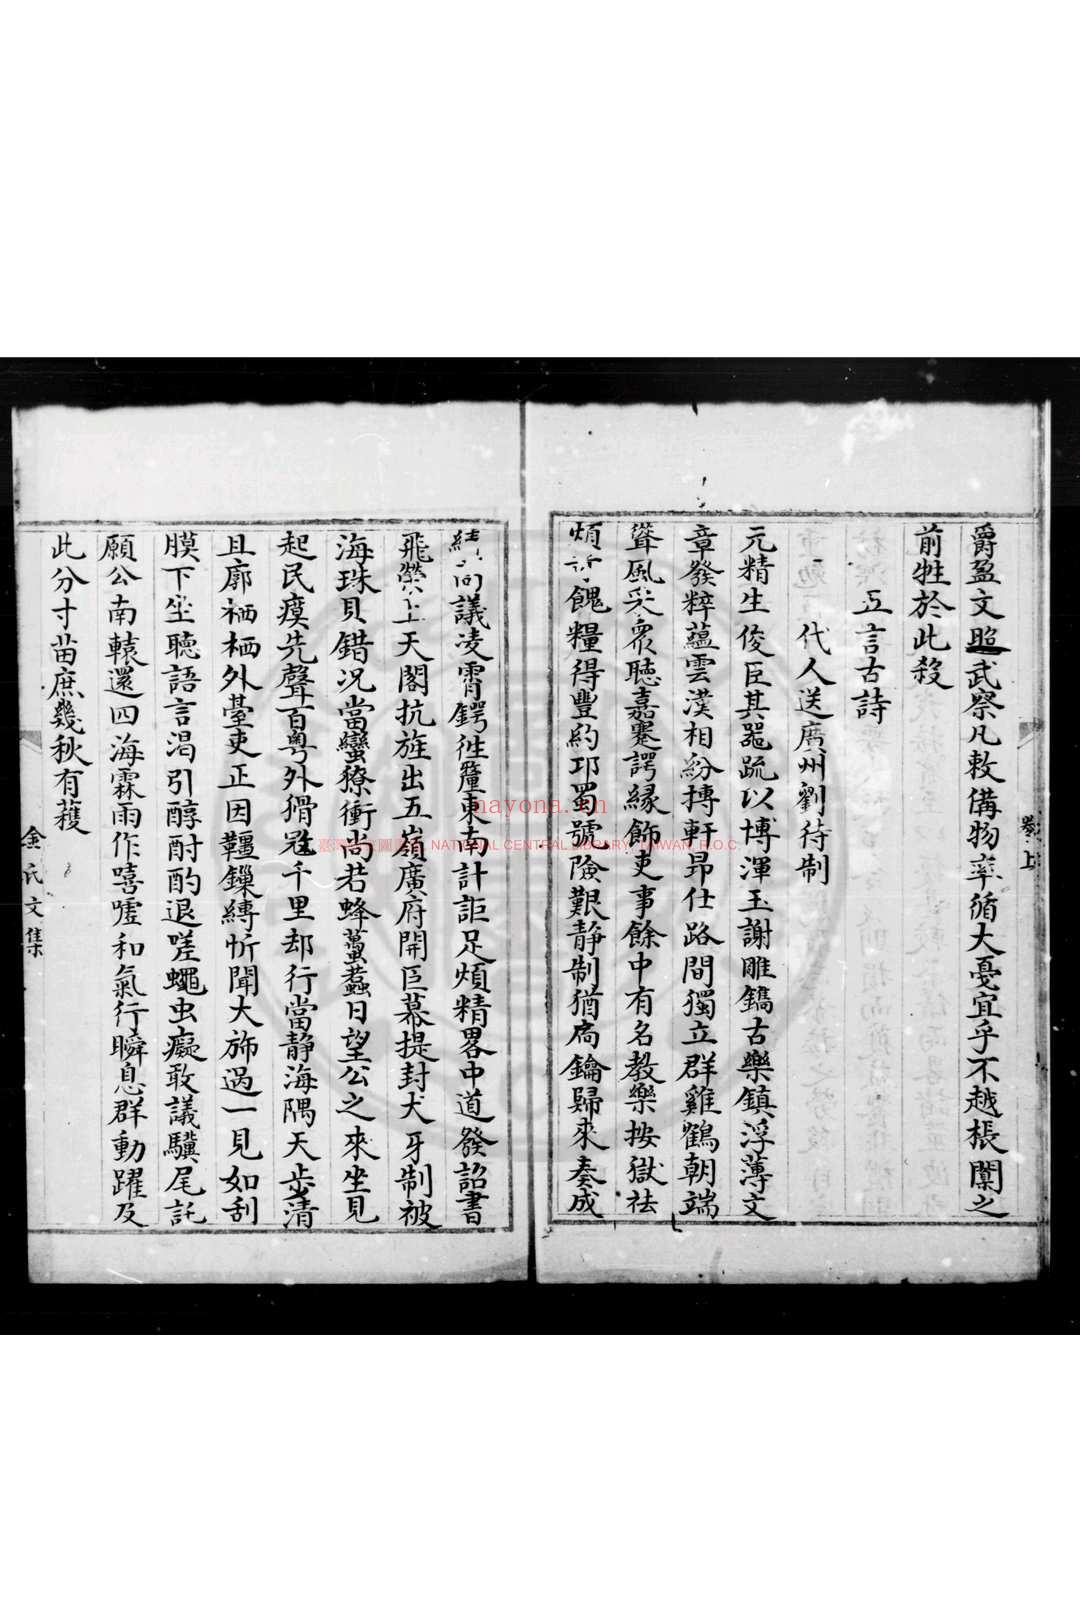 爵盈文照武祭凡敕備物率循大憂宜乎不越棖闑之
前牲於此殺
五言古詩
代人送廣州劉待制
元精生俊臣其器疏以博渾玉謝雕鐫古樂鎮浮薄文
章發粹蘊雲漢相紛搏軒昂仕路間獨立群雞鶴朝端
聳風采衆聽嘉蹇諤緣飾吏事餘中有名教樂按獄祛
煩 餽糧得豐約邛蜀號險艱静制猶扃鑰歸來奏成
績 議凌霄鍔徃 東南計詎足煩精畧中道發詔書
飛榮上天閣抗旌出五嶺廣府開巨幕提封犬牙制被
海珠貝錯况當蠻獠衝尚若蜂蠆蠚日望公之來坐見
起民瘼先聲百粤外猾 千里却行當静海隅天步清
且廓栖栖外臺吏正因韁鏁縛忻聞大斾過一見如刮
膜下坐聽語言渴引醇酎酌退嗟蠅虫癡敢議驥尾託
願公南轅還四海霖雨作嘻嘘和氣行瞬息群動躍及
此分寸苗庶幾秋有蒦
卷上
金氏文集
nayona.cn
臺灣 圖 NATIONAL CENTRAL LIBRARY, TAIWAN, R.O.C.